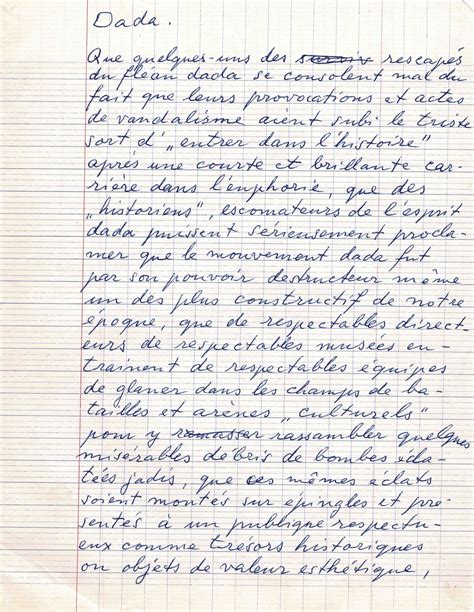 Dada.
Que quelques-uns des surviv rescapés
du fléau dada se consolent mal du
fait que leurs provocations et actes
de vandalisme aient subi le triste
sort d' „entrer dans l'histoire"
après une courte et brillante car-
rière dans l'euphorie, que des
„historiens", escomateurs de l'esprit
dada puissent sérieusement procla-
mer que le mouvement dada fut
par son pouvoir destructeur même
un des plus constructif de notre
époque, que de respectables direct-
eurs de respectables musées en-
traînent de respectables équipes
de glaner dans les champs de ba-
tailles et arènes „culturels"
pour y ramasser rassambler quelques
misérables débris de bombes écla-
tées jadis, que ces mêmes éclats
soient montés sur épingles et pré-
sentés à un publique respectu-
eux comme trésors historiques
ou objets de valeur esthétique,